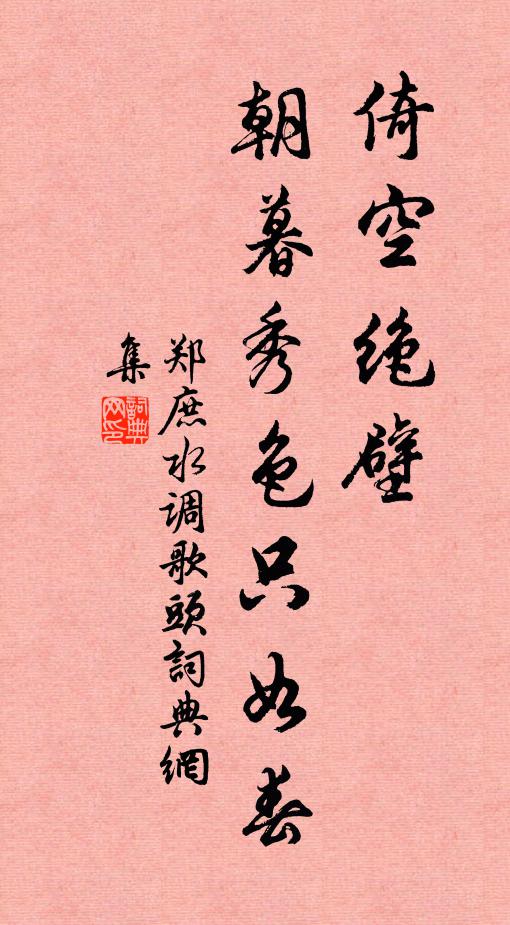 倚空绝壁
朝暮秀色只如春
郑庶水调歌头詞典網
集
詞典网印